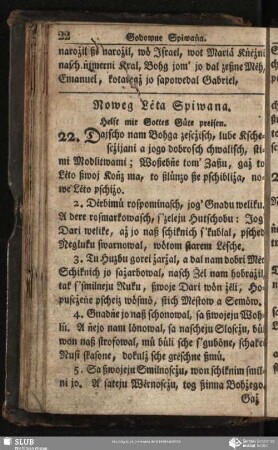 22 Godowne Spiwaňa.
narožil ßě narožil, wó Israel, wot Mariä Kněžni
nasch ňimerni Kral, Bohg jom' jo dal zeßne Měh,
Emanuel, kotaregž jo sapowedal Gabriel.
Noweg Léta Spiwana.
Helft mir Gottes Güte preisen.
22. Dajscho nam Bohga zesczisch, lube Ksche-
sczijani a jogo dobrosch chwalisch, sti-
mi Modlitwami; Woßebńe tom' Zaßu, gaž to
Léto ßwoj Końz ma, to ßlúnzo ße pschibliža, no-
we Léto pschižo.
2. Dérbimü rospominasch, jog' Gnadu weliku.
A dere rosmarkowasch, s'zeleju Hutschobu: Jog'
Dari welike, až jo naß schiknich s'kublal, psched
Negluku swarnowal, wótom starem Lésche.
3. Tu Huzbu gorei žaržal, a dal nam dobri Mér
Schiknich jo sažarbowal, nasch Žel nam hobražil,
tak s'smilneju Ruku, ßwoje Dari wón želi, Ho-
pusczéńe pscheiz wósmü, stich Méstow a Semów.
4. Gnadńe jo naß schonowal, sa ßwojeju Wóh-
lü. A ńejo nam lónowal, sa nascheju Sloscžu, büli
won naß strofowal, mü büli sche s'gubóne, schake
Nusi skasone, dokulž sche greschne ßmü.
5. Sa ßwojeju Smilnosczu, won schiknim smil-
ni jo. A sateju Wérnosczu, tog ßinna Bohžego.
Gaž
SLUB